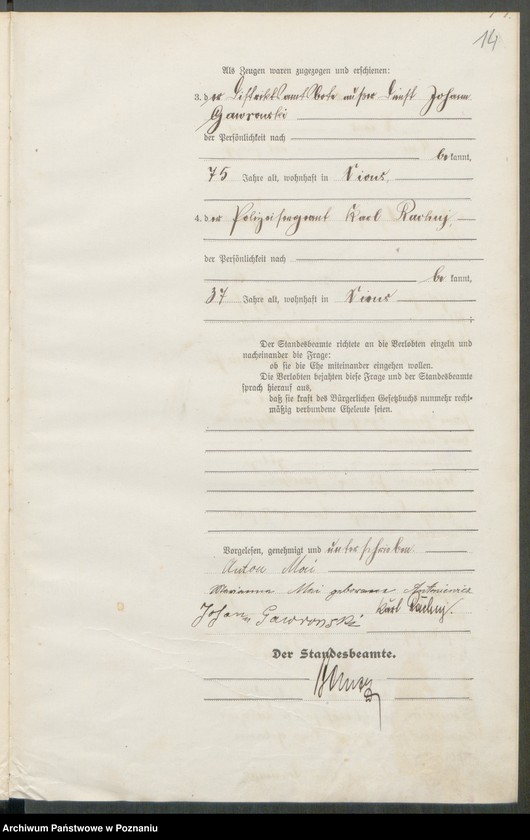 14
Als Zeugen waren zugezogen und erschienen:
3. der Distriktsamtsbote außer Dienst Johann
Gawronski
der Persönlichkeit nach
be kannt,
75 Jahre alt, wohnhaft in Xions
4. der Polizeisergeant Karl Rachuj,
der Persönlichkeit nach
be kannt,
37 Jahre alt, wohnhaft in Xions
Der Standesbeamte richtete an die Verlobten einzeln und
nacheinander die Frage:
ob sie die Ehe miteinander eingehen wollen.
Die Verlobten bejahten diese Frage und der Standesbeamte
sprach hierauf aus,
daß sie kraft des Bürgerlichen Gesetzbuchs nunmehr recht-
mäßig verbundene Eheleute seien.
Vorgelesen, genehmigt und unterschrieben.
Anton Mai
Marianna Mai geborene
Johann Gawronski Karl Rachuj.
Der Standesbeamte.
Archiwum Państwowe w Poznaniu